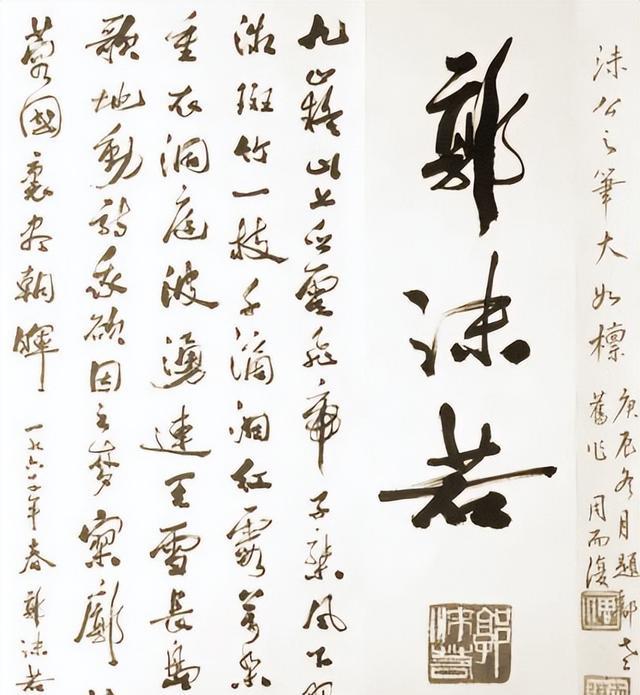 沫公之筆大如檩
庚辰冬月題郭老
舊作 周而復
郭沫若
郭沫若
九嶷山上白雲飛帝子乘風下
微斑竹一枝千滴淚紅霞萬朵
重衣洞庭波湧連天雪長島
歌地動詩我欲因之夢寥廓
蓉國裏盡朝暉 一九六年春 郭沫若